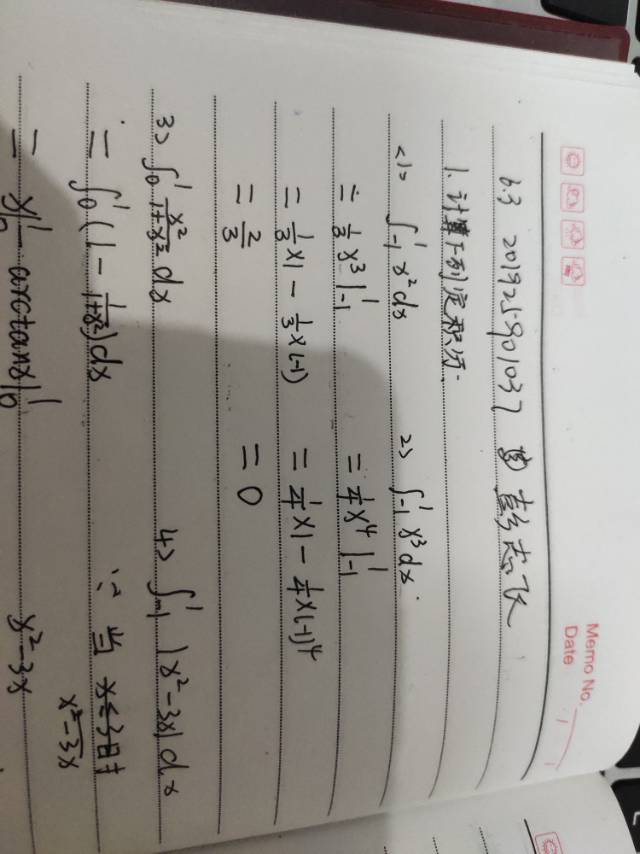 Memo No. 1
Date
6.3 201925901037 彭志飞
1. 计算下列定积分.
<1> ∫₋₁¹ x²dx
= 1/3 x³|₋₁¹
= 1/3 ×1 - 1/3 ×(-1)
= 2/3
2> ∫₋₁¹ x³dx.
= 1/4 x⁴|₋₁¹
= 1/4 ×1 - 1/4 ×(-1)⁴
= 0
3> ∫₀¹ x²/(1+x²) dx
= ∫₀¹ (1 - 1/(1+x²))dx
= x|₀¹ - arctanx|₀¹
4> ∫₋₁¹ |x²-3x|dx
∵ 当 x≤3时
x²-3x
x²-3x